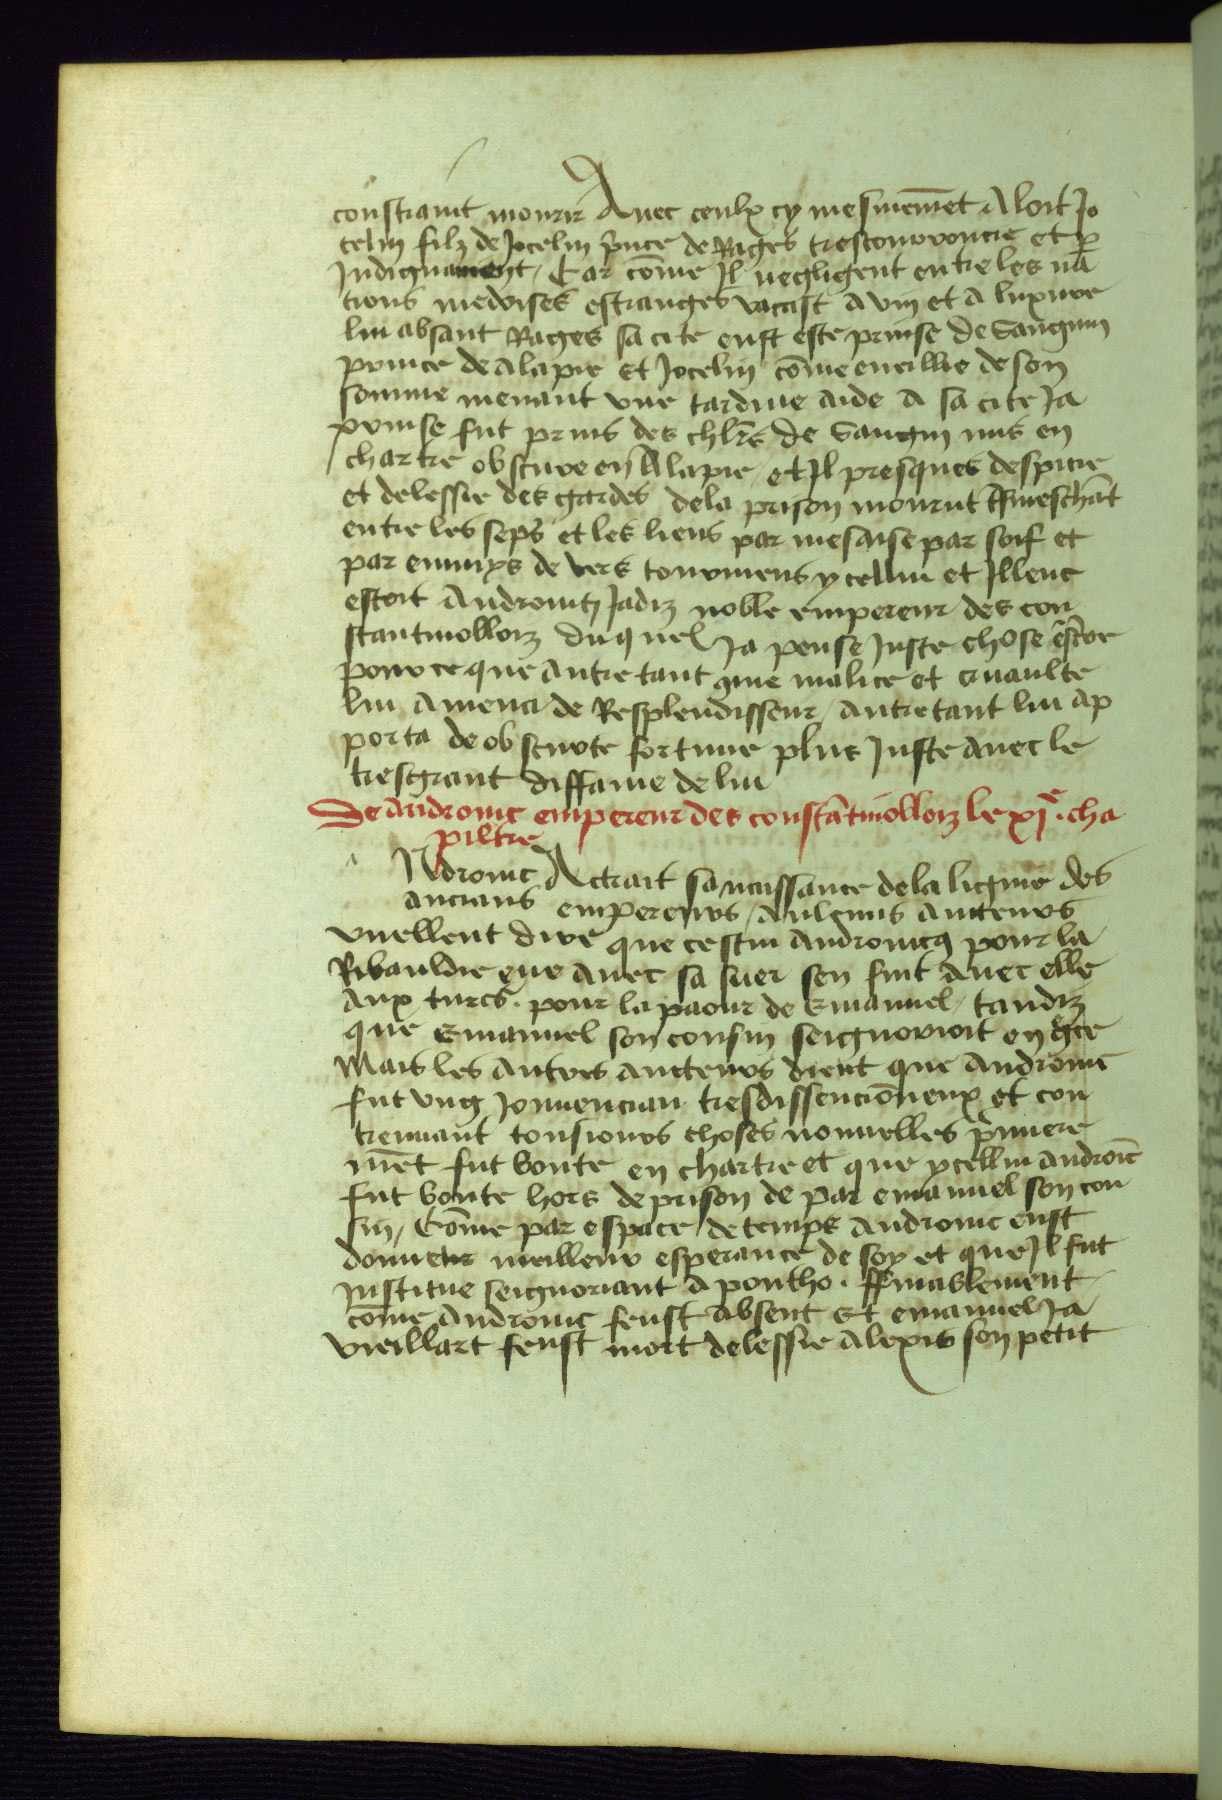 constraint mourir Auec ceulx cy mesmemēt Aloit Jo
celin filz de Jocelin p̄nce de Rages trescourroucie et p̄
Indignament / Car cōme Jl negligent entre les nā
tions medoises estranges vacast a vin et a luxure
lui absant Rages sa cite eust este prinse de Sanguin
prince de alapie Et Jocelin cōme eueillie de son
somme menant vne tardiue aide a sa cite Ja
prinse fut prins des chl̄rs de Sanguin mis en
chartre obscure en Alapie / et Jl presques despitie
et delessie des gardes dela prison mourut meschāt
entre les seps et les liens par mesaise par soif et
par ennuys de vers tourmens ycellui et Jllenc
estoit Andronic Jadiz noble empereur des con
stantinolloiz duquel Ja pense Juste chose escrire
pour ce que autretant q̄me malice et cruaulte
lui amena de Resplendisseur / autretant lui ap
porta de obscurte fortune plus Juste auec le
tresgrant diffame de lui
De andronic empereur des constātinolloiz le xj.e cha
piltre
a Ndronic Actrait sa naissance dela lignie des
ancians empereurs / Aulcuns aucteurs
vuellent dire que cestui andronicq pour la
Ribauldie eue auec sa suer sen fuit auec elle
aux turcs . pour la paour de Emanuel / tandiz
que Emanuel son cousin seignorioit en grēce
Mais les autres aucteurs dient que andronic
fut vng Jouuencian tresdissencionneux et con
treuuant tousiours choses nouuelles p̄miere
mēt fut boute en chartre et que ycellui andronic
fut boute hors de prison de par emanuel son cou
sin / Cōme par espace de temps andronic eust
donne meilleur esperance de soy et que Jl fut
Institue seignoriant a pontho . ffinablement
cōme andronic feust absent Et emanuel Ja
vieillart feust mort delessie alexis son petit